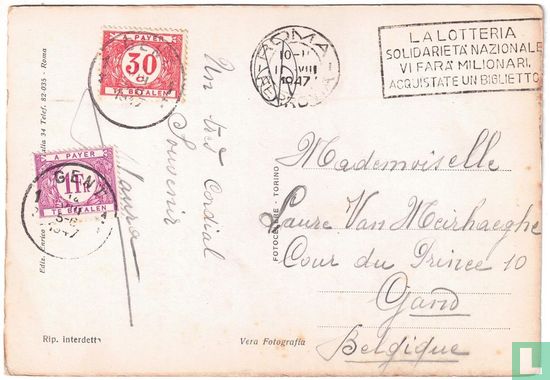 A PAYER
30
TE BETALEN
A PAYER
1 FR
TE BETALEN
GENT
1947
ROMA
10-
VIII
1947
LA LOTTERIA
SOLIDARIETÀ NAZIONALE
VI FARÀ MILIONARI.
ACQUISTATE UN BIGLIETTO
Un très Cordial
Souvenir
Mademoiselle
Laure Van Meirhaeghe
Cour du Prince 10
Gand
Belgique
FOTOCELERE - TORINO
Ediz. Enrico
34 Telef. 82-035 - Roma
Rip. interdetta
Vera Fotografia